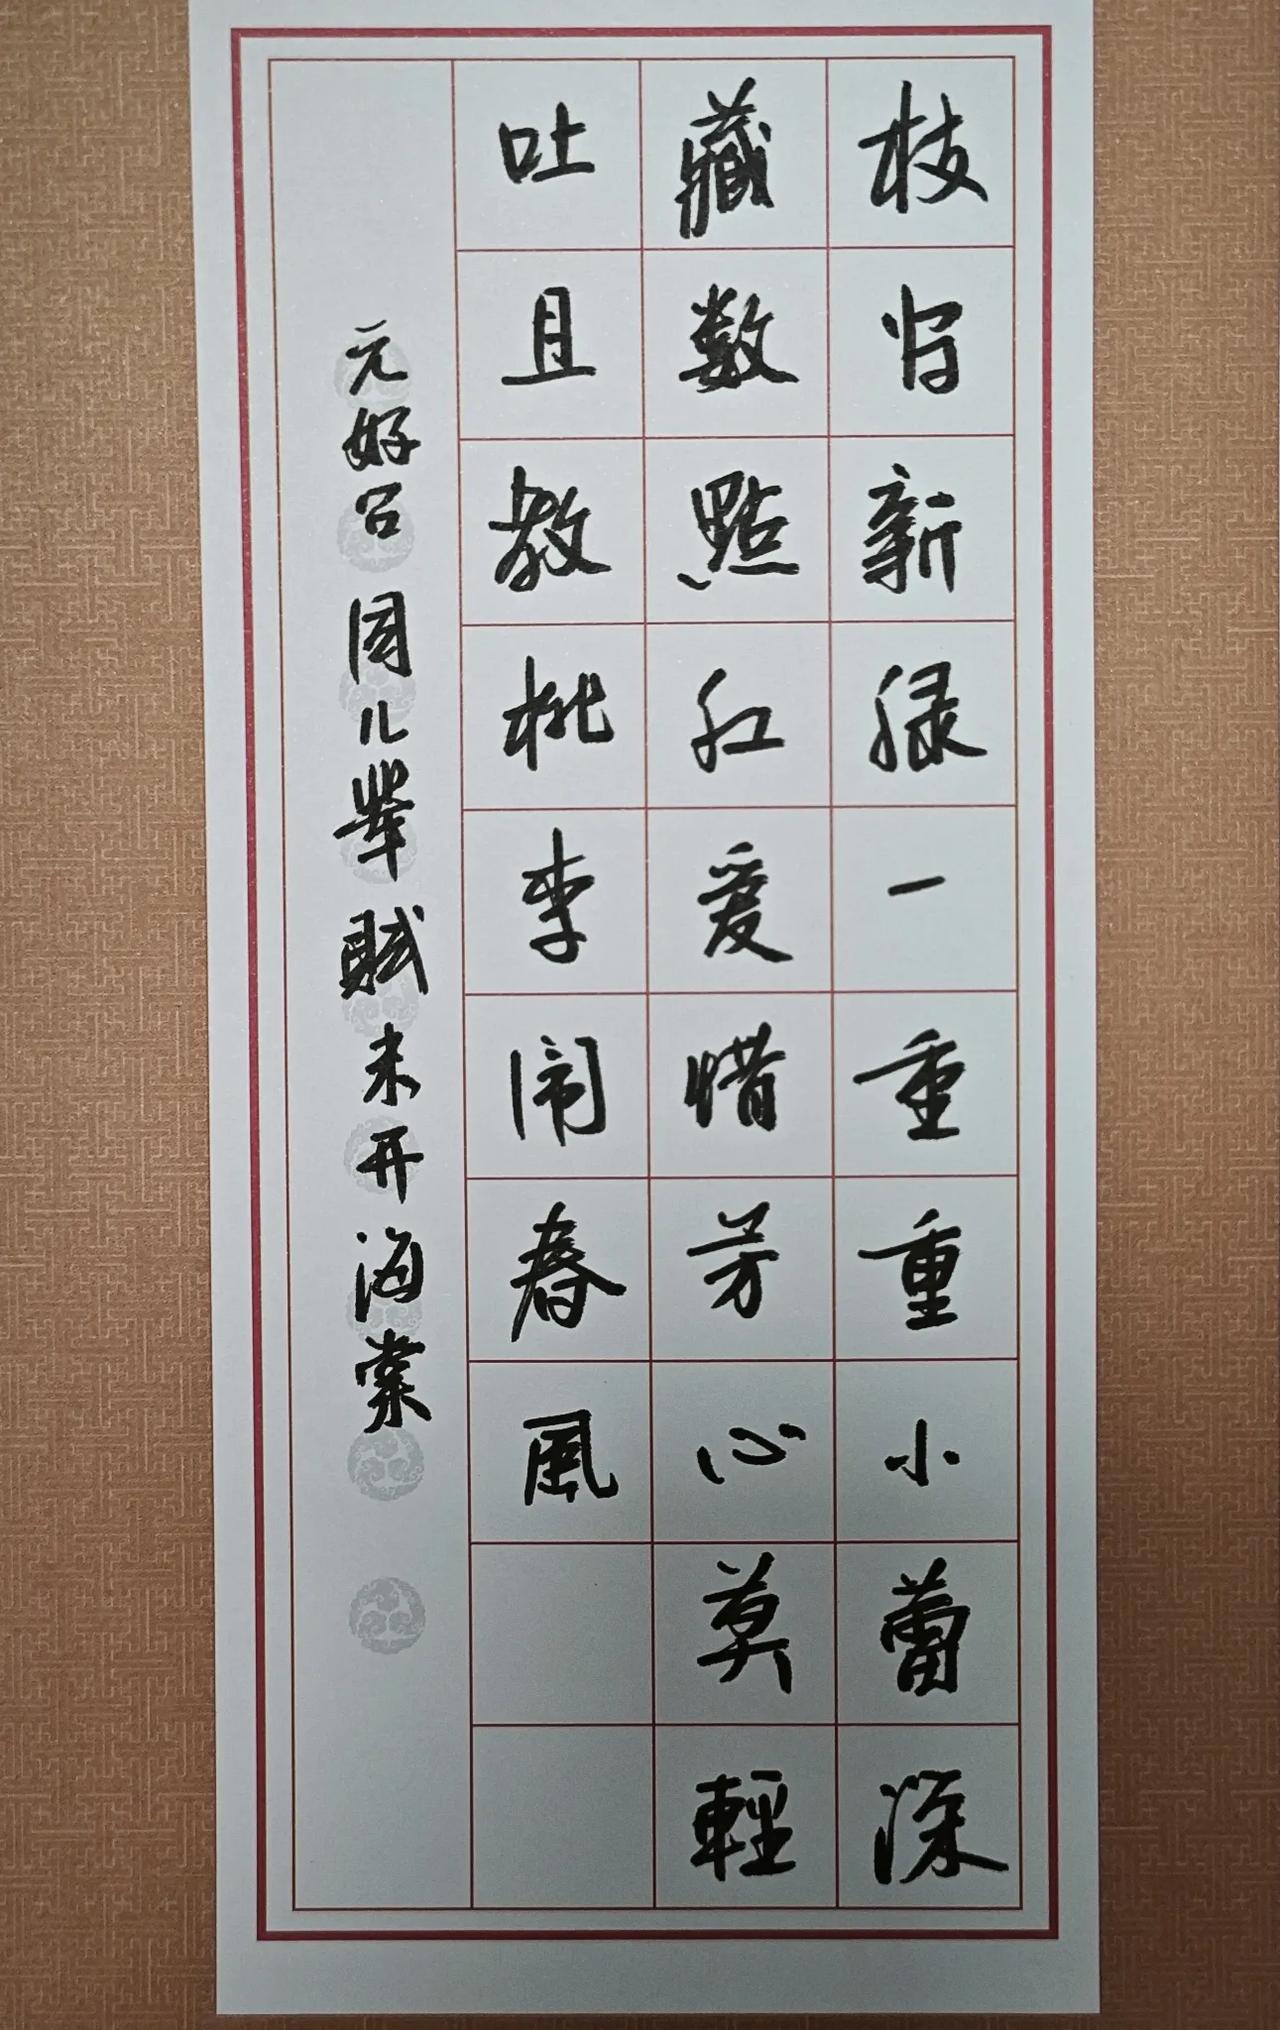 枝间新绿一重重小蕾深
藏数點红爱惜芳心莫輕
吐且教桃李闹春風
元好问同儿輩賦未开海棠